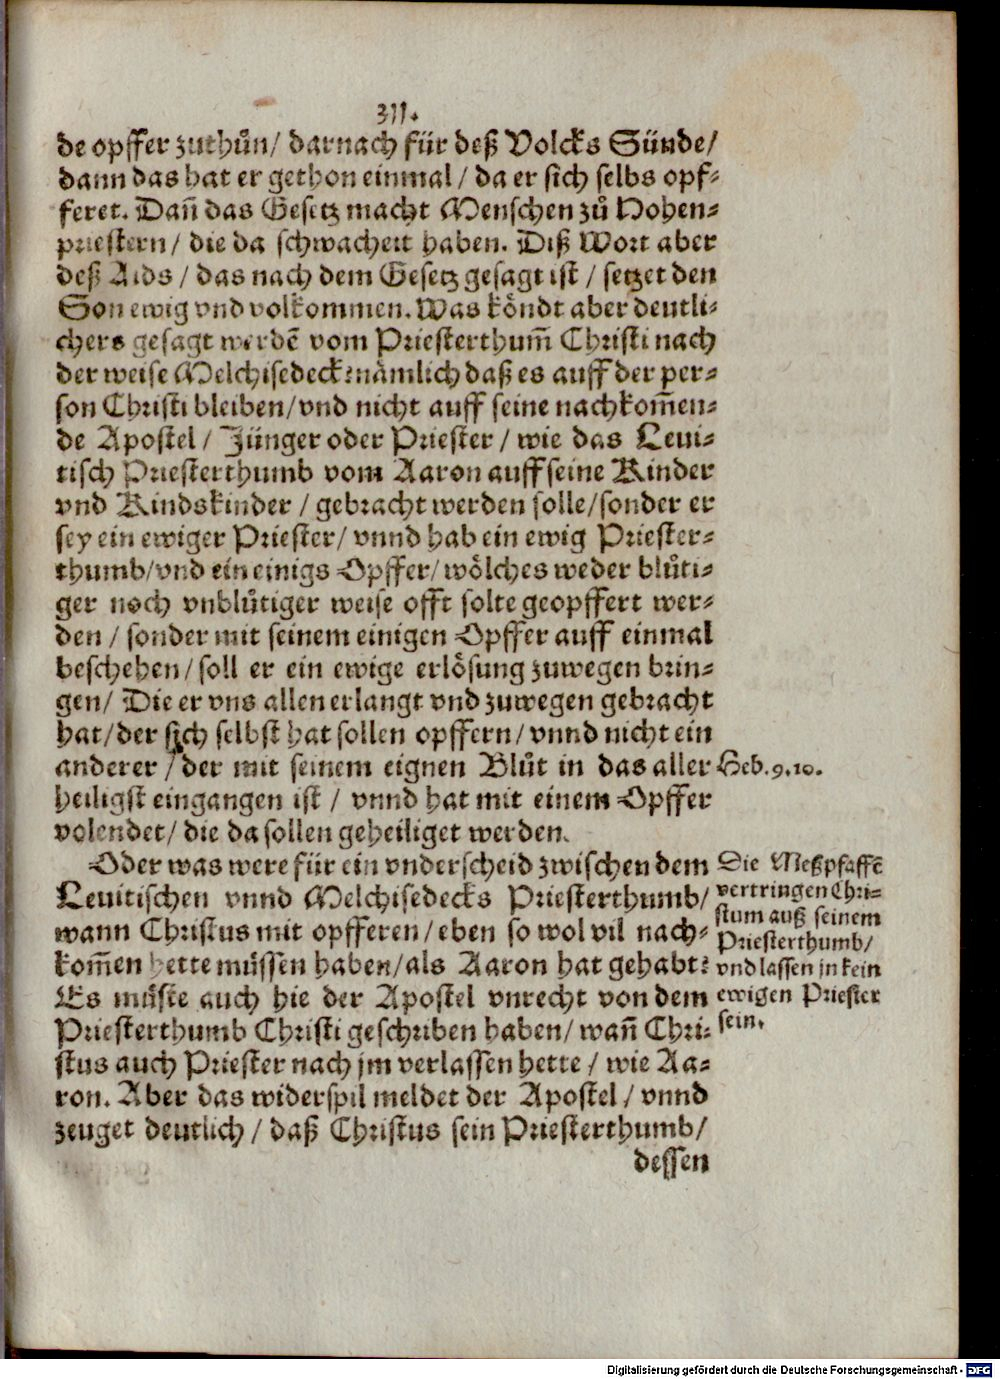 311.
de opffer zuthůn/ darnach für deß Volcks Sünde/
dann das hat er gethon einmal/ da er sich selbs opf-
feret. Dañ das Gesetz macht Menschen zů Hohen-
priestern/ die da schwacheit haben. Diß Wort aber
deß Aids/ das nach dem Gesetz gesagt ist/ setzet den
Son ewig vnd volkommen. Was köndt aber deutli-
chers gesagt werdẽ vom Priesterthum̃ Christi nach
der weise Melchisedeck: nämlich daß es auff der per-
son Christi bleiben/ vnd nicht auff seine nachkom̃en-
de Apostel/ Jünger oder Priester/ wie das Leui-
tisch Priesterthumb vom Aaron auff seine Kinder
vnd Kindskinder/ gebracht werden solle/ sonder er
sey ein ewiger Priester/ vnnd hab ein ewig Priester-
thumb/ vnd ein einigs Opffer/ wölches weder blůti-
ger noch vnblůtiger weise offt solte geopffert wer-
den/ sonder mit seinem einigen Opffer auff einmal
beschehen/ soll er ein ewige erlösung zuwegen brin-
gen/ Die er vns allen erlangt vnd zuwegen gebracht
hat/ der sich selbst hat sollen opffern/ vnnd nicht ein
anderer/ der mit seinem eignen Blůt in das aller
Heb.9.10.
heiligst eingangen ist/ vnnd hat mit einem Opffer
volendet/ die da sollen geheiliget werden.
Oder was were für ein vnderscheid zwischen dem
Leuitischen vnnd Melchisedecks Priesterthumb/
wann Christus mit opfferen/ eben so wol vil nach-
kom̃en hette müssen haben/ als Aaron hat gehabt:
Es müste auch hie der Apostel vnrecht von dem
Priesterthumb Christi geschriben haben/ wañ Chri-
stus auch Priester nach jm verlassen hette/ wie Aa-
ron. Aber das widerspil meldet der Apostel/ vnnd
zeuget deutlich/ daß Christus sein Priesterthumb/
dessen
Die Meßpfaffẽ
vertringen Chri-
stum auß seinem
Priesterthumb/
vnd lassen jn kein
ewigen Priester
sein.
Digitalisierung gefördert durch die Deutsche Forschungsgemeinschaft - DFG